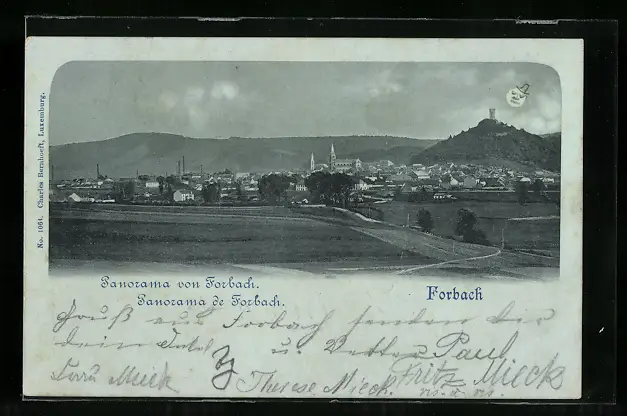 No. 1064. Charles Bernhoeft, Luxemburg.
Panorama von Forbach.
Panorama de Forbach.
Forbach
Gruß aus Forbach senden Dir
dein Onkel u. Vetter Paul
Frau Mieck Therese Mieck. Fritz Mieck